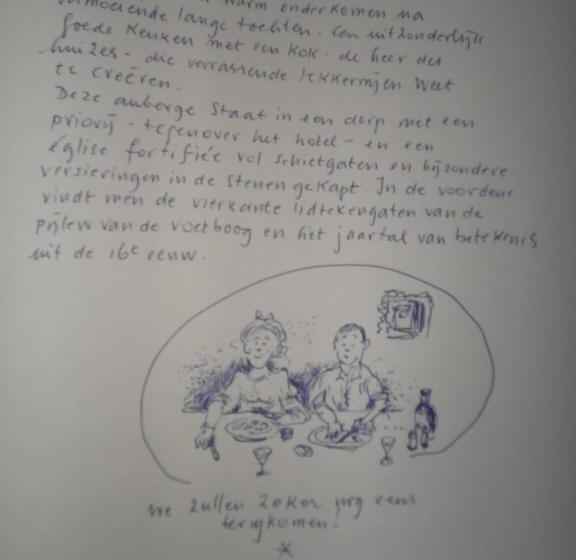 vermoeiende lange tochten. Een uitzonderlijk
goede keuken met een kok - de heer des
huizes - die verrassende lekkernijen weet
te creëren.
Deze auberge staat in een dorp met een
priorij - tegenover het hotel - en een
église fortifiée vol schietgaten en bijzondere
versieringen in de stenen gekapt. In de voordeur
vindt men de vierkante lidtekengaten van de
pijlen van de voetboog en het jaartal van betekenis
uit de 16e eeuw.
We zullen zeker nog eens
terugkomen!
*